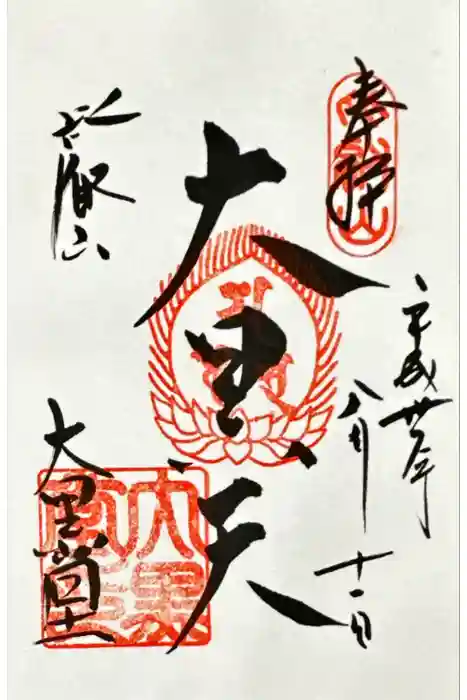 奉拝
平成卅年
八月十一日
大黒天
比叡山
大黒堂